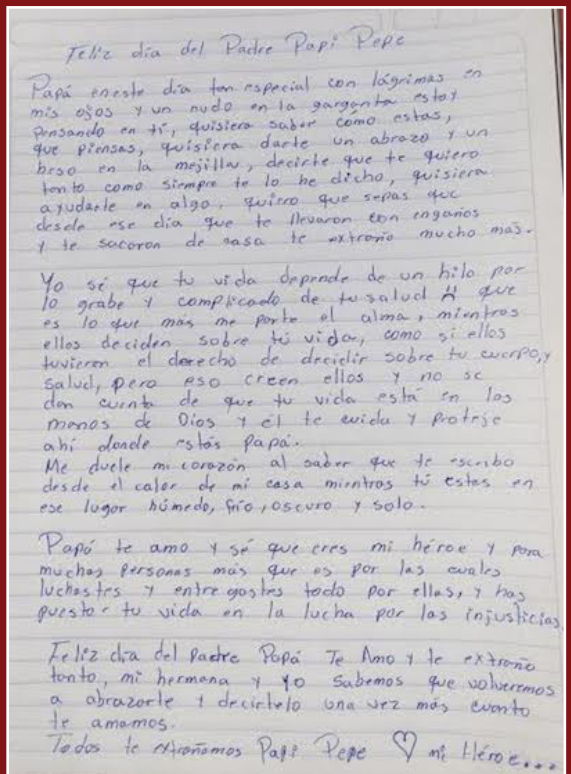 Feliz día del Padre Papi Pepe
Papá eneste día tan especial con lágrimas en
mis ojos y un nudo en la garganta estoy
pensando en tí, quisiera saber como estas,
que piensas, quisiera darte un abrazo y un
beso en la mejilla, decirte que te quiero
tanto como siempre te lo he dicho, quisiera
ayudarle en algo, quiero que sepas que
desde ese día que te llevaron con engaños
y te sacaron de casa te extraño mucho más.
Yo sé que tu vida depende de un hilo por
lo grabe y complicado de tu salud y que
es lo que más me parte el alma, mientras
ellos deciden sobre tú vida, como si ellos
tuvieran el derecho de decidir sobre tu cuerpo, y
salud, pero eso creen ellos y no se
dan cuenta de que tu vida está en las
manos de Dios y él te cuida y proteje
ahí donde estás papá.
Me duele mi corazón al saber que te escribo
desde el calor de mi casa mientras tú estas en
ese lugar húmedo, frío, oscuro y solo.
Papá te amo y sé que eres mi héroe y para
muchas personas más que es por las cuales
luchastes y entregastes todo por ellas, y has
puesto tu vida en la lucha por las injusticias.
Feliz día del Padre Papá Te Amo y te extraño
tanto, mi hermana y yo sabemos que volveremos
a abrazarte y decirtelo una vez más cuanto
te amamos.
Todos te extrañamos Papi Pepe ♡ mi Héroe...